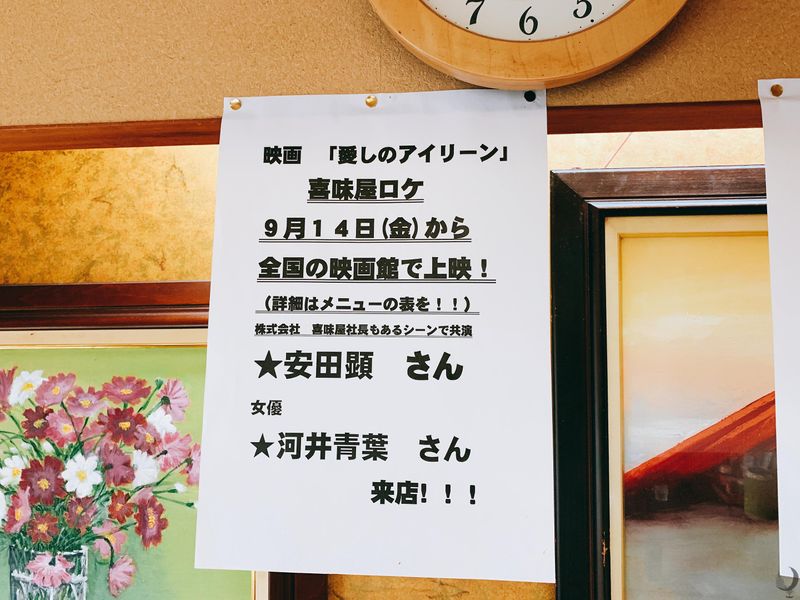 7 6 5
映画 「愛しのアイリーン」
喜味屋ロケ
９月１４日(金)から
全国の映画館で上映！
（詳細はメニューの表を！！）
株式会社 喜味屋社長もあるシーンで共演
★安田顕 さん
女優
★河井青葉 さん
来店！！！